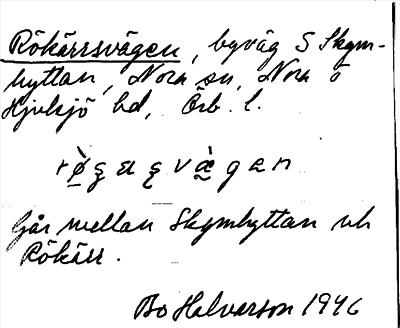 Rökärrsvägen, byväg S Skym-
hyttan, Nora sn, Nora o
Hjulsjö hd, Örb. l.
Går mellan Skymhyttan och
Rökärr.
Bo Halvarson 1946